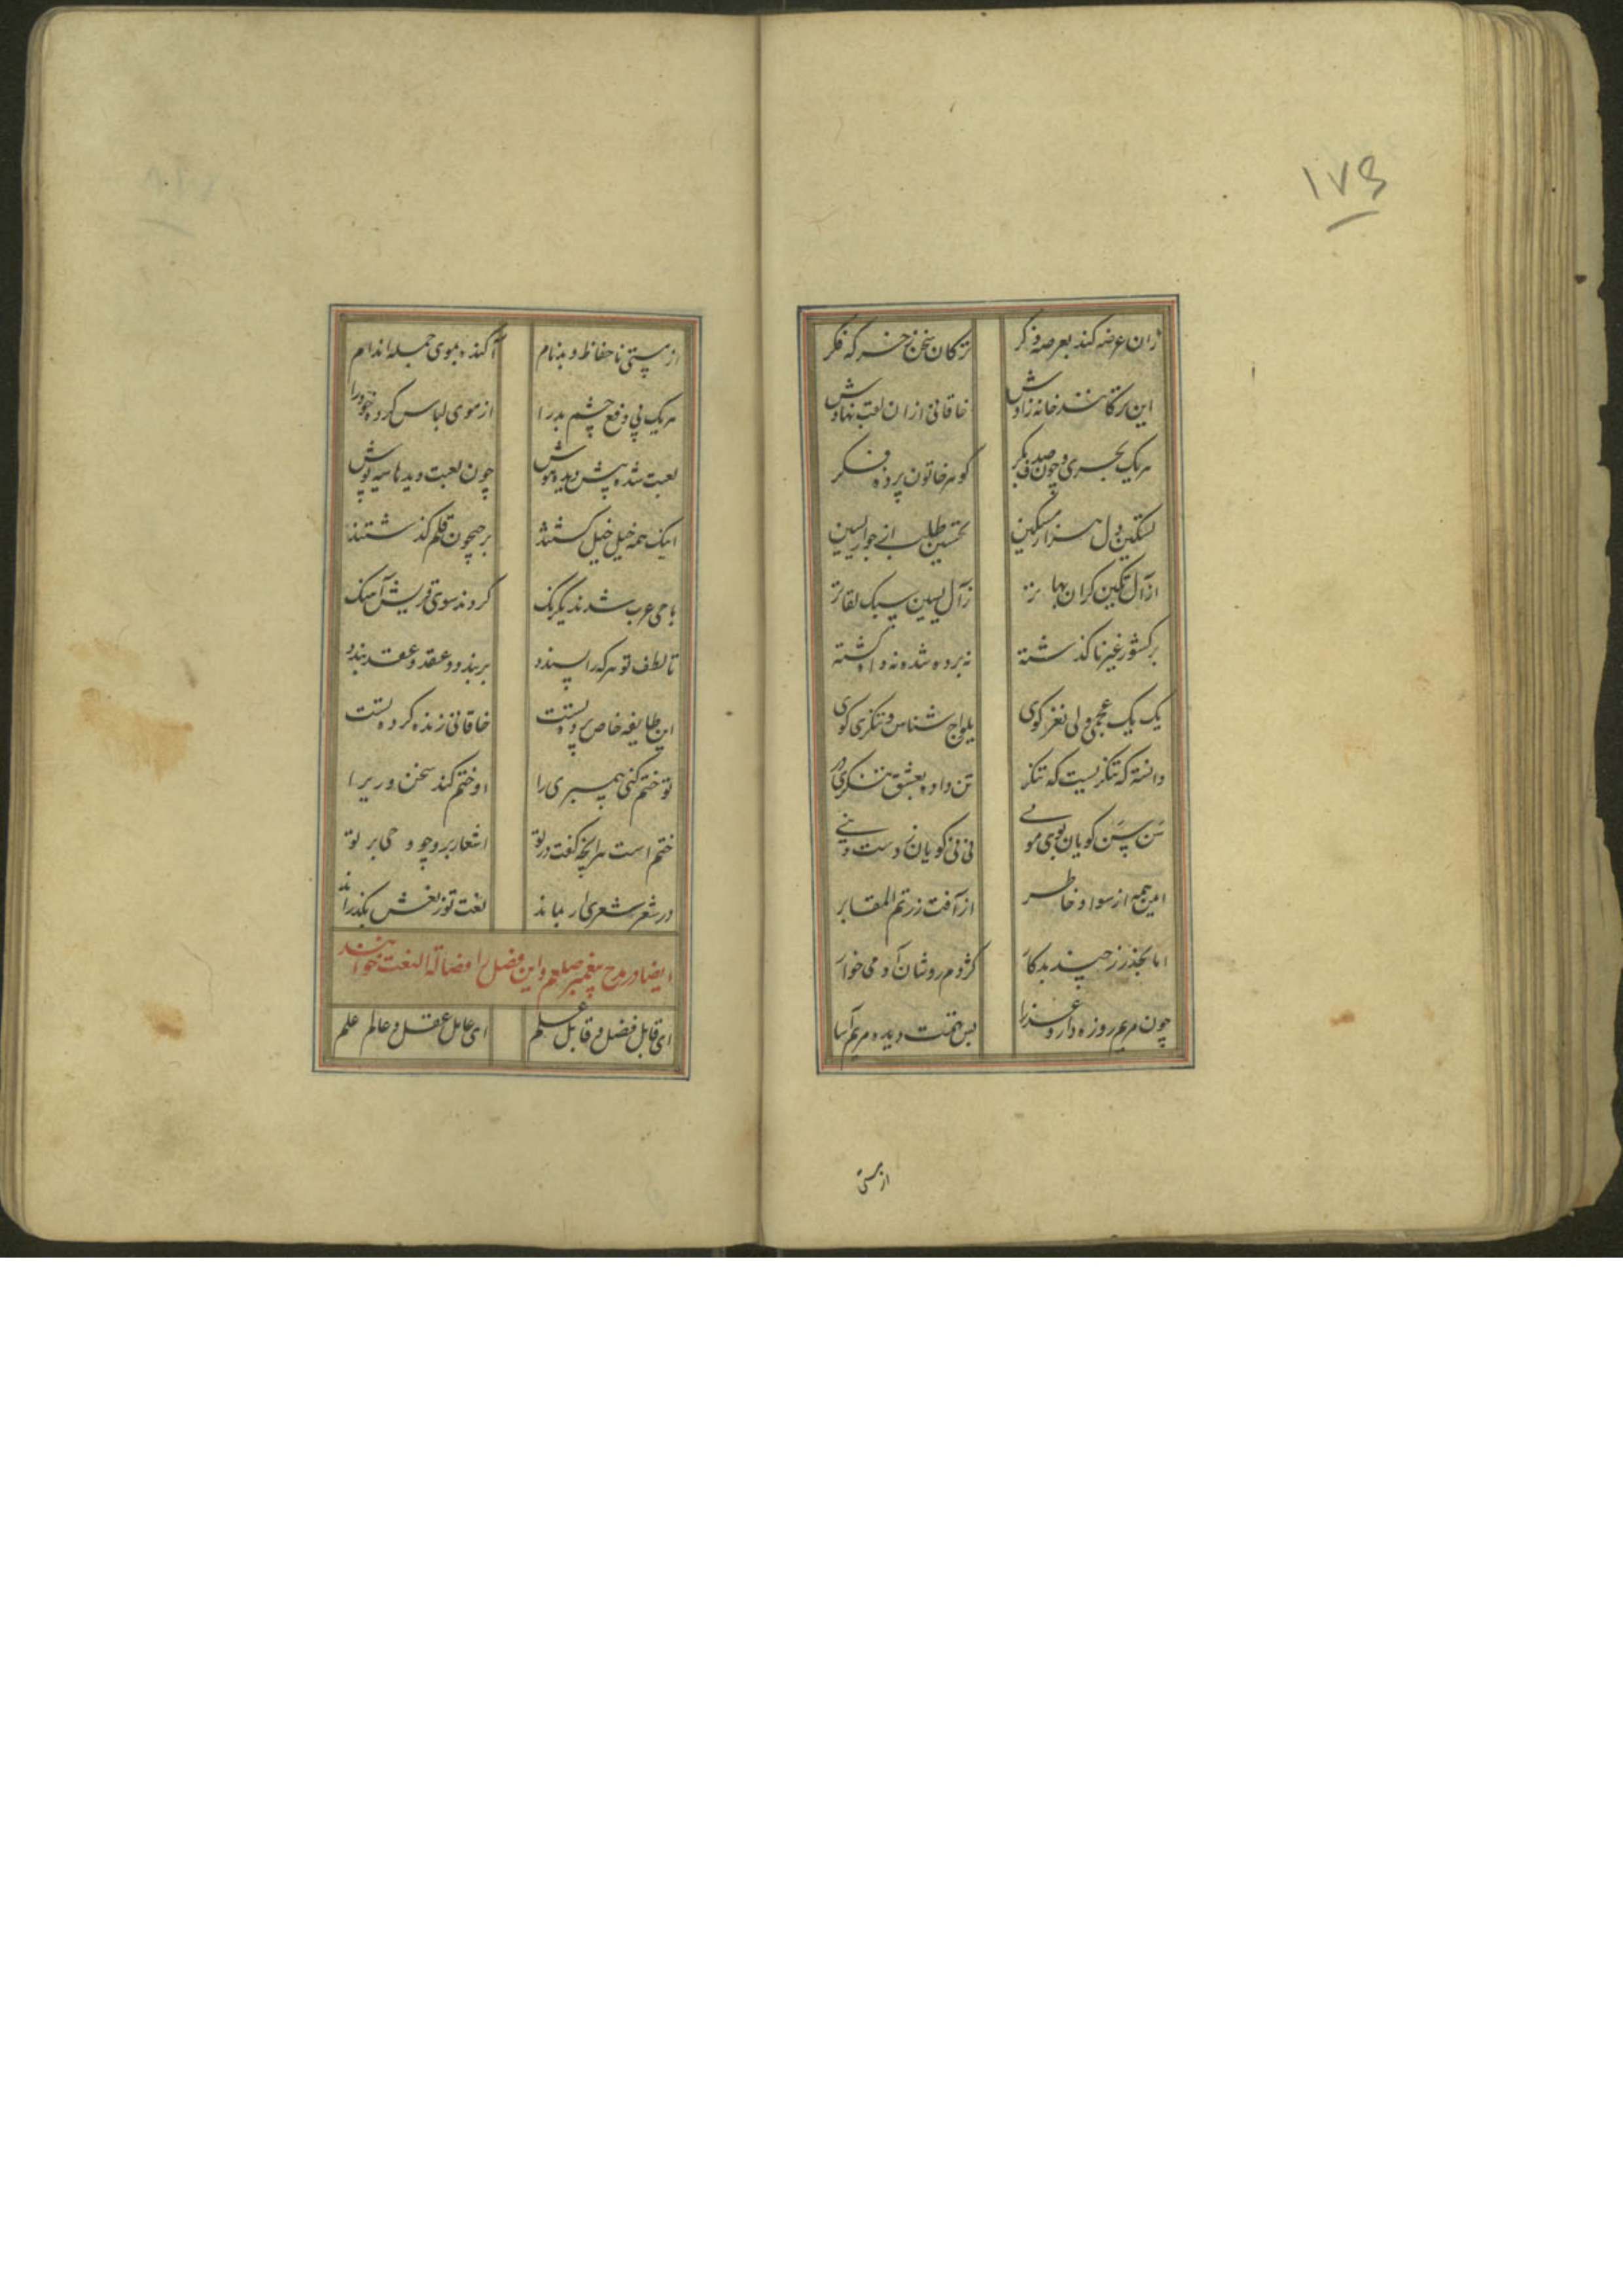 ۱۷۹
زان عرضه کند بعرصه ذکر ترکان سخن ز خرکه فکر
این ترکانند خانه زادش خاقانی ازان لقب نهادش
هریک بحری و چون صدف بکر کوهر خاتون پرده فکر
تسکین دل هزار مسکین تحسین طلب از جوار یسین
از آل تکین کران بها تر ز آل یسین سبک لقا تر
بر کشور غیر ناکذشته نه برده شده نه داه کشته
یک یک عجمی ولی نغز کوی یلواج شناس و تنکری کوی
دانسته که تنکریست که تنکر تن داده بعشق تنکری در
سن سن کویان بوی موی نی نی کویان ز دست
این جمه از سواد خاطر از آفت زرتم المقابر
اما بحذر ز چند بدکار کژدم روشان آدمی خوار
چون مریم روزه دار و عذرا بس تهمت دیده مریم آسا
از مستی
از مستی ناحفاظ و بدنام آکنده بموی جمله اندام
هریک پی دفع چشم بد را از موی لباس کرده خود را
لعبت شده پیش دیده هوش چون لعبت دیدها سیه پوش
اینک همه خیل خیل کشتند بر جیحون قلم کذشتند
با حی عرب شدند یکرنک کردند سوی قریش آهنک
تا لطف تو هرکه را پسندد بربندد و عقد و عقد بندد
این طایفه خاص پرده تست خاقانی زنده کرده تست
تو ختم کنی پیمبری را او ختم کند سخن وری را
ختم است هرانچه کفت در تو اشعار برو چو وحی بر تو
در شعر شعری ار بماند نعت تو ز نعش بکذراند
ایضا در مدح پیغمبر صلعم و این فصل را مضالة النعت خوانند
ای قابل فضل و قابل علم ای عامل عقل و عالم علم